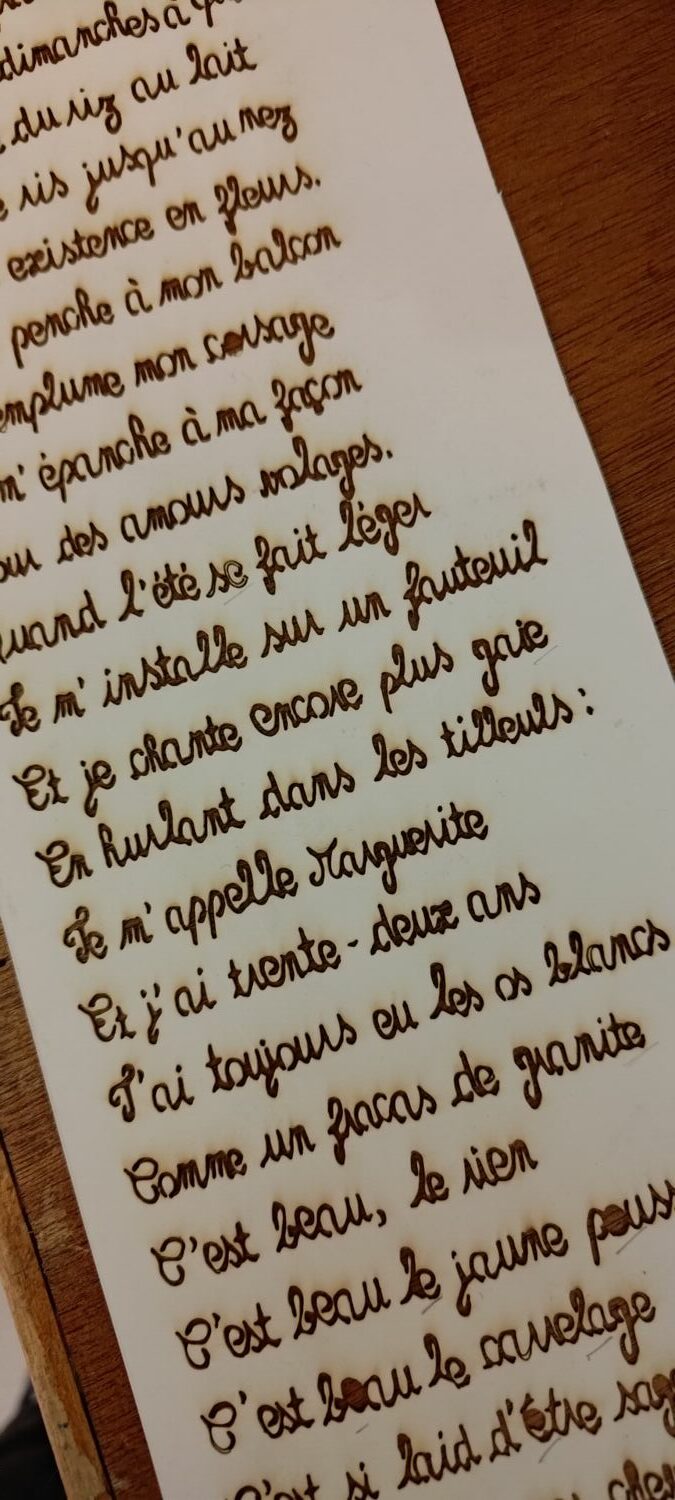 dimanches à
du riz au lait
ris jusqu'au nez
existence en fleurs.
penche à mon balcon
mon corsage
m'épanche à ma façon
des amours volages.
Quand l'été se fait léger
Je m'installe sur un fauteuil
Et je chante encore plus gaie
En hurlant dans les tilleuls :
Je m'appelle Marguerite
Et j'ai trente-deux ans
J'ai toujours eu les os blancs
Comme un fracas de granite
C'est beau, le rien
C'est beau le jaune
C'est beau le carrelage
C'est si laid d'être